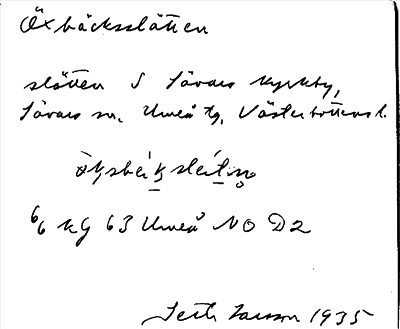 Öxbäcksslätten
slätten S Sävars kyrkby,
Sävars sn. Umeå tg. Västerbottens l.
6/6 kg 63 Umeå NO D2
Seth Larsson 1935